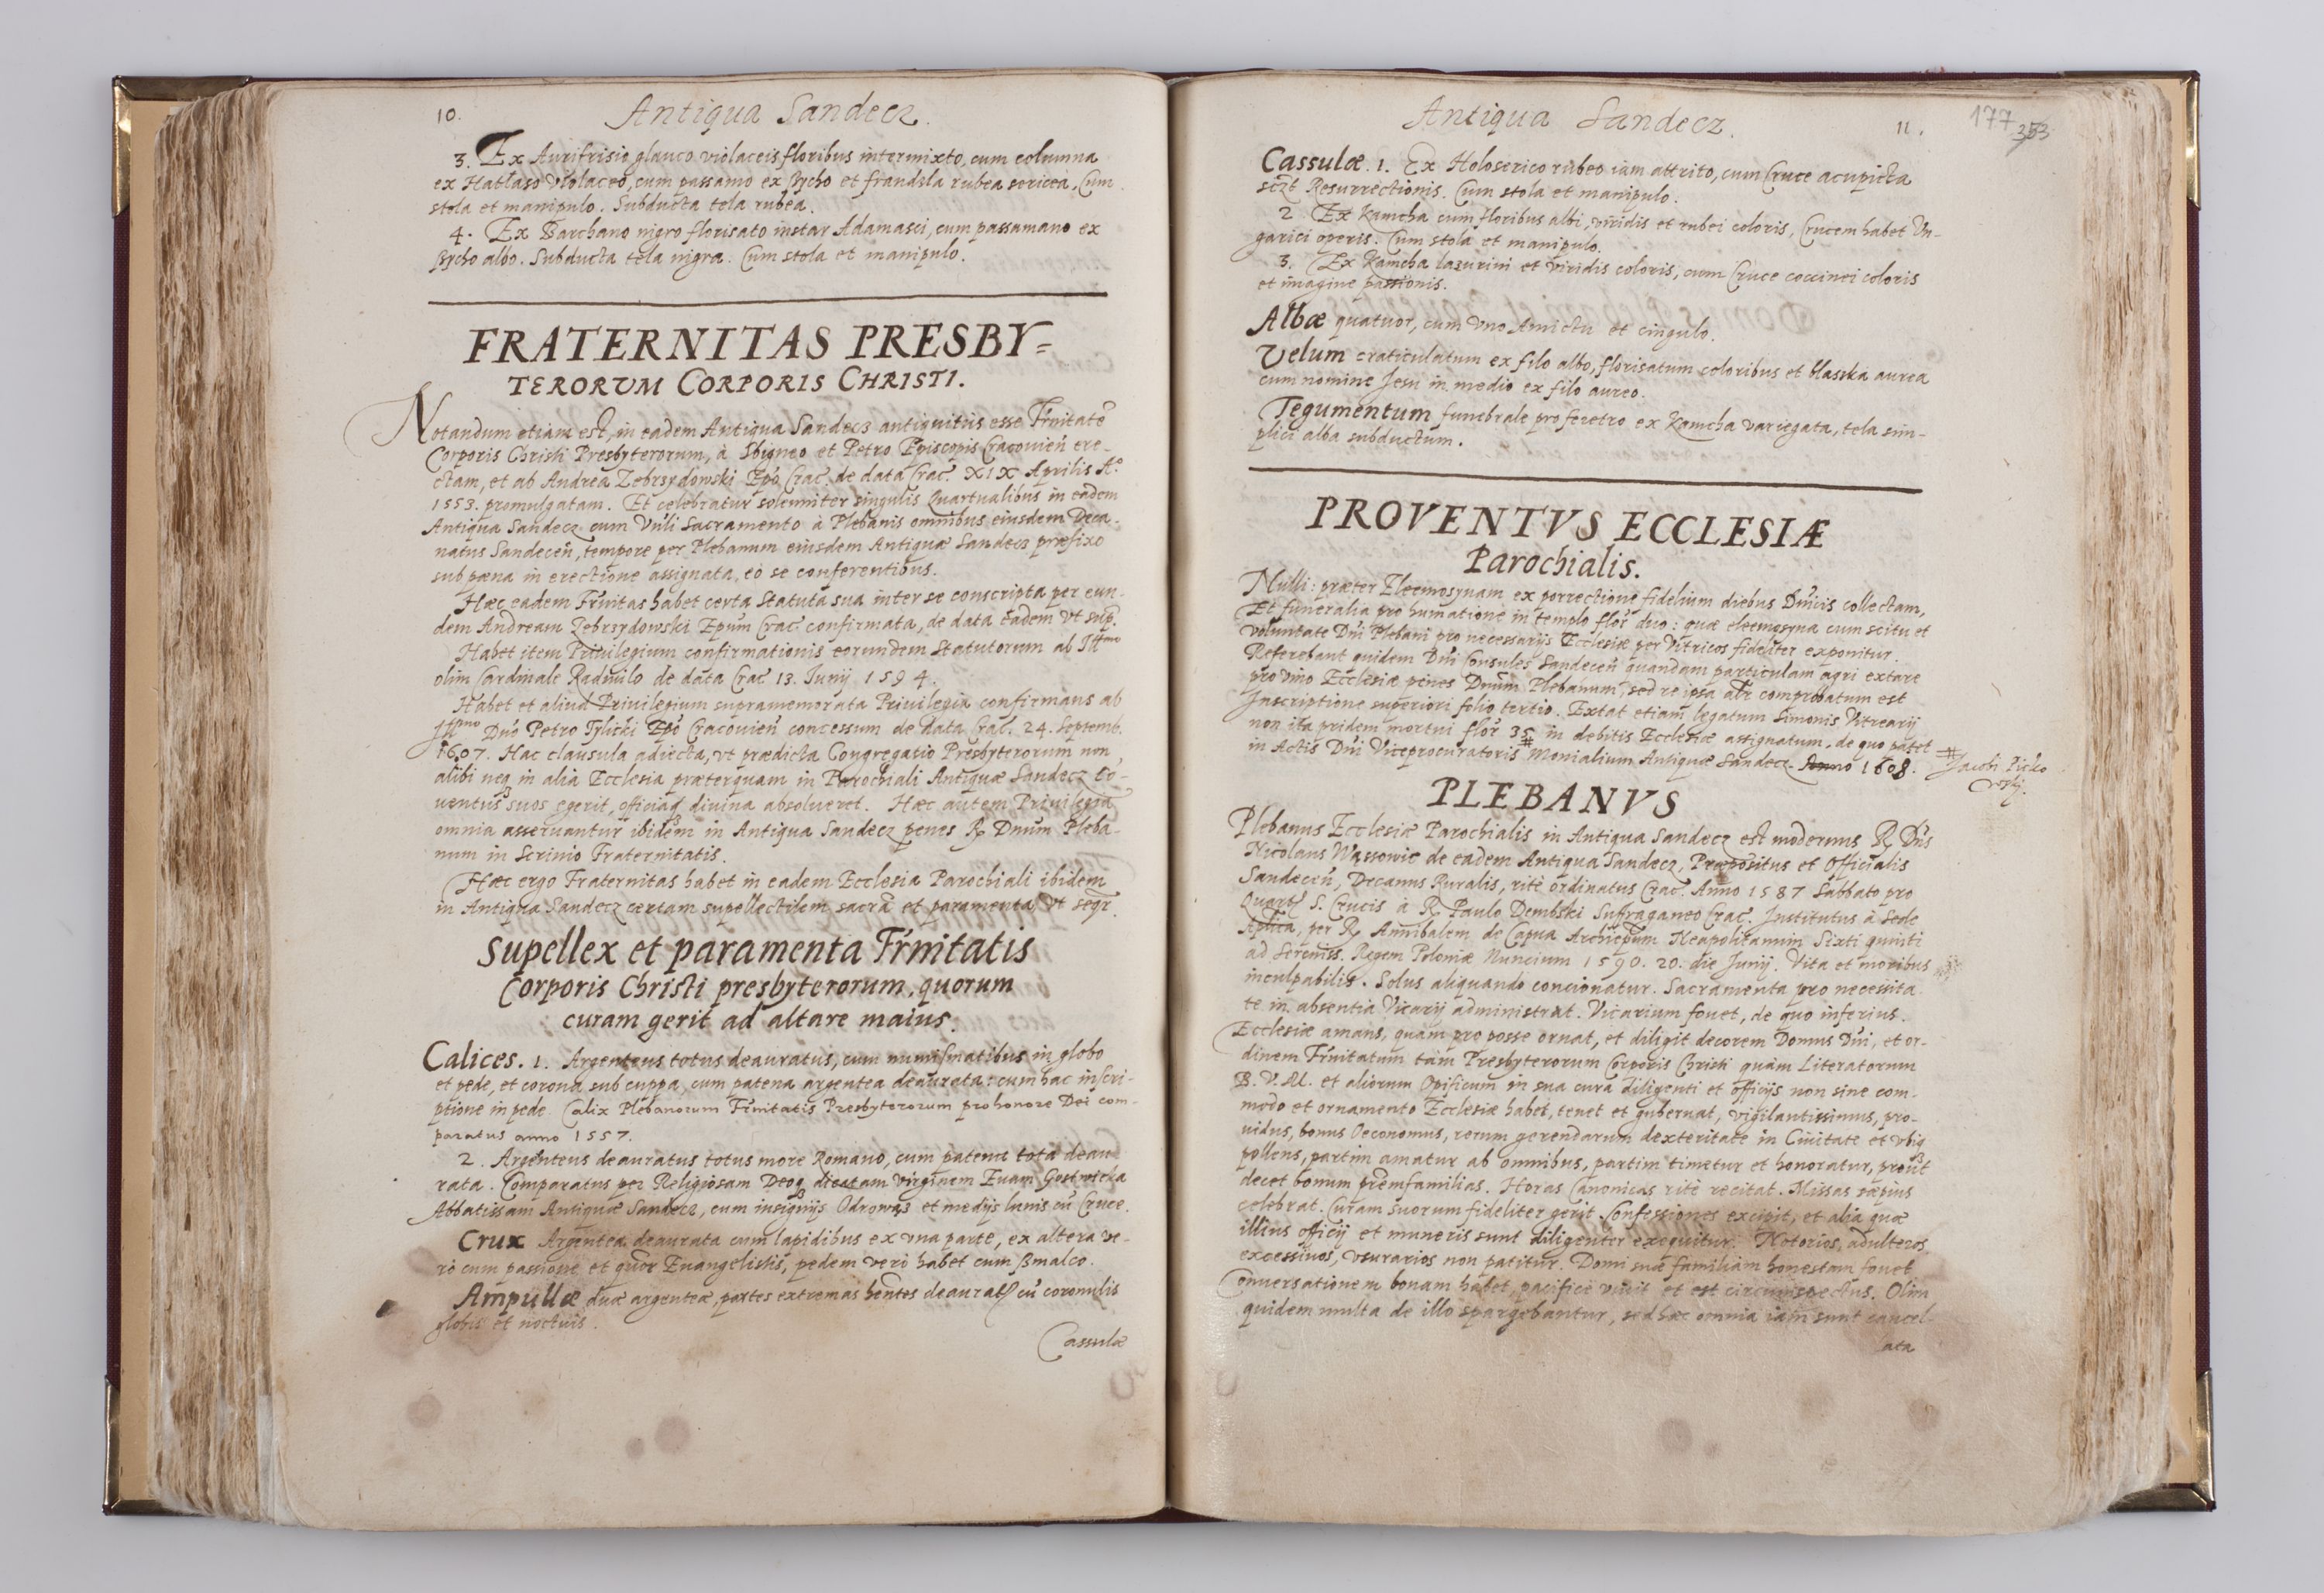 10.
Antiqua Sandecz.
3. Ex Aurifrisio glauco violaceis floribus intermixto, cum columna
ex Hatłaso violaceo, cum passamo ex sycho et frandsla rubea sericea. Cum
stola et manipulo. Subducta tela rubea.
4. Ex Barchano nigro florisato instar Adamasci, cum passamano ex
sycho albo. Subducta tela nigra. Cum stola et manipulo.
FRATERNITAS PRESBY=
TERORVM CORPORIS CHRISTI.
Notandum etiam est, in eadem Antiqua Sandecz antiquitus esse Frnitatē
Corporis Christi Presbyterorum, à Sbigneo et Petro Episcopis Cracovień ere-
ctam, et ab Andrea Zebrzydowski Epo Crac. de data Crac. XIX Aprilis Aº
1553. promulgatam. Et celebratur solemniter singulis Quartualibus in eadem
Antiqua Sandecz cum Vnli Sacramento à Plebanis omnibus eiusdem Deca-
natus Sandeceń, tempore per Plebanum eiusdem Antiquæ Sandecz præfixo
sub pæna in erectione assignata, eò se conferentibus.
Hæc eadem Frnitas habet certa Statuta sua inter se conscripta per eun-
dem Andream Zebrzydowski Epum Crac confirmata, de data eadem vt sup.
Habet item Priuilegium confirmationis eorundem Statutorum ab Illmo
olim Cardinale Radiuilo de data Crac 13. Iunij 1594.
Habet et aliud Priuilegium supramemorata Priuilegia confirmans ab
Illmo Dno Petro Tylicki Epo Cracouień concessum de data Crac. 24. Septemb.
1607. Hac clausula adiecta, vt prædicta Congregatio Presbyterorum non
alibi neq in alia Ecclesia præterquam in Parochiali Antiquæ Sandecz Cō-
uentus suos egerit, officiaq divina absolueret. Hæc autem Priuilegia
omnia asseruantur ibidem in Antiqua Sandecz penes R Dnum Pleba-
num in Scrinio Fraternitatis.
Hæc ergo Fraternitas habet in eadem Ecclesia Parochiali ibidem
in Antiqua Sandecz certam supellectilem sacrā et paramenta vt seqr.
Supellex et paramenta Frnitatis
Corporis Christi presbyterorum, quorum
curam gerit ad altare maius.
Calices. 1. Argenteus totus deauratus, cum numismatibus in globo
et pede, et corona sub cuppa, cum patena argentea deaurata: cum hac inscri-
ptione in pede Calix Plebanorum Frnitatis Presbyterorum pro honore Dei com-
paratus anno 1557.
2. Argenteus deauratus totus more Romano, cum patena tota deau-
rata. Comparatus per Religiosam Deoq dicatam virginem Euam Gostwicka
Abbatissam Antiquæ Sandecz, cum insignijs Odrowąż et medijs lunis cū Cruce.
Crux Argentea deaurata cum lapidibus ex vna parte, ex altera ve-
rò cum passione et quor Euangelistis, pedem verò habet cum smalco.
Ampullæ duæ argenteæ, partes extremas hentes deaurat cū coronulis
globis et noctuis.
Cassulæ
Antiqua Sandecz.
11.
177
353
Cassulæ. 1. Ex Holoserico rubeo iam attrito, cum Cruce acupicta
sczt Resurrectionis. Cum stola et manipulo.
2 Ex Kamcha cum floribus albi, viridis et rubei coloris, Crucem habet Vn-
garici operis. Cum stola et manipulo.
3. Ex Kamcha lazurini et viridis coloris, cum Cruce coccinei coloris
et imagine passionis.
Albæ quatuor, cum vno Amictu et cingulo.
Velum craticulatum ex filo albo, florisatum coloribus et blasska aurea
cum nomine Jesu in medio ex filo aureo.
Tegumentum funebrale pro feretro ex Kamcha variegata, tela sim-
plici alba subductum.
PROVENTVS ECCLESIÆ
Parochialis.
Nulli: præter Eleemosynam ex porrectione fidelium diebus Dnicis collectam,
Et funeralia pro humatione in templo flor duo: quæ eleemosyna cum scitu et
voluntate Dni Plebani pro necessarijs Ecclesiæ per Vitricos fideliter exponitur.
Referebant quidem Dni Consules Sandeceń quandam particulam agri extare
pro vino Ecclesiæ penes Dnum Plebanum, sed re ipsa alr comprobatum est
Inscriptione superiori folio tertio. Extat etiam legatum Simonis Vitrearij
non ita pridem mortui flor 35 in debitis Ecclesiæ assignatum, de quo patet
in Actis Dni Viceprocuratoris # Monialium Antiquæ Sandecz Anno 1608.
# Jacobi Picko
PLEBANVS
Plebanus Ecclesiæ Parochialis in Antiqua Sandecz est modernus R Dns
Nicolaus Wassowic de eadem Antiqua Sandecz, Præpositus et Officialis
Sandeceń, Decanus Ruralis, ritè ordinatus Crac. Anno 1587 Sabbato pro
Quart S. Crucis à R Paulo Dembski Suffraganeo Crac. Institutus à Sede
Aplica, per R Annibalem de Capua Archiepum Neapolitanum Sixti quinti
ad Sereniss. Regem Poloniæ Nuncium 1590. 20. die Junij. Vita et moribus
inculpabilis. Solus aliquando concionatur. Sacramenta pro necessita
te in absentia Vicarij administrat. Vicarium fouet, de quo inferius.
Ecclesiæ amans, quam pro posse ornat, et diligit decorem Domus Dni, et or-
dinem Frnitatum tàm Presbyterorum Corporis Christi quàm Literatorum
B. V. M. et aliorum Opificum in sua cura diligenti et officijs non sine com-
modo et ornamento Ecclesiæ habet, tenet et gubernat, vigilantissimus, pro-
uidus, bonus Oeconomus, rerum gerendarum dexteritate in Ciuitate et vbiq
pollens, partim amatur ab omnibus, partim timetur et honoratur, prout
decet bonum premfamilias. Horas Canonicas ritè recitat. Missas sæpius
celebrat. Curam suorum fideliter gerit. Confessiones excipit, et alia quæ
illius officij et muneris sunt diligenter exequitur. Notorios, adulteros,
excessiuos, vsurarios non patitur. Domi suæ familiam honestam fouet
Conuersationem bonam habet, pacifice viuit et est circumspectus. Olim
quidem multa de illo spargebantur, sed hæc omnia iam sunt cancel-
lata